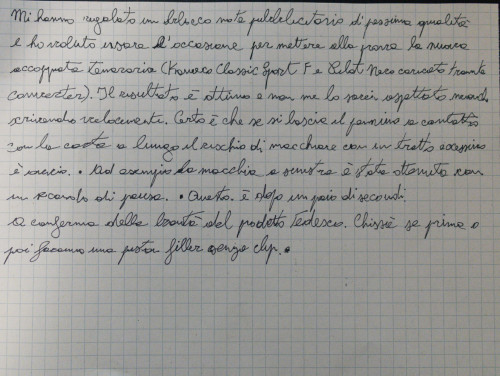 Mi hanno regalato un blocco note pubblicitario di pessima qualità
e ho voluto usare l'occasione per mettere alla prova la nuova
accoppiata temeraria (Kaweco Classic Sport F e Pelot Nero caricato tramite
converter). Il risultato è ottimo e non me lo sarei aspettato
scrivendo velocemente. Certo è che se si lascia il pennino a contatto
con la carta a lungo il rischio di macchiare con un tratto eccessivo
è • Ad esempio la macchia a sinistra è stata ottenuta con
un secondo di pausa. • Questa è dopo un paio di secondi
A conferma della bontà del prodotto Tedesco. Chissà se prima o
poi faranno una piston filler senza clip.